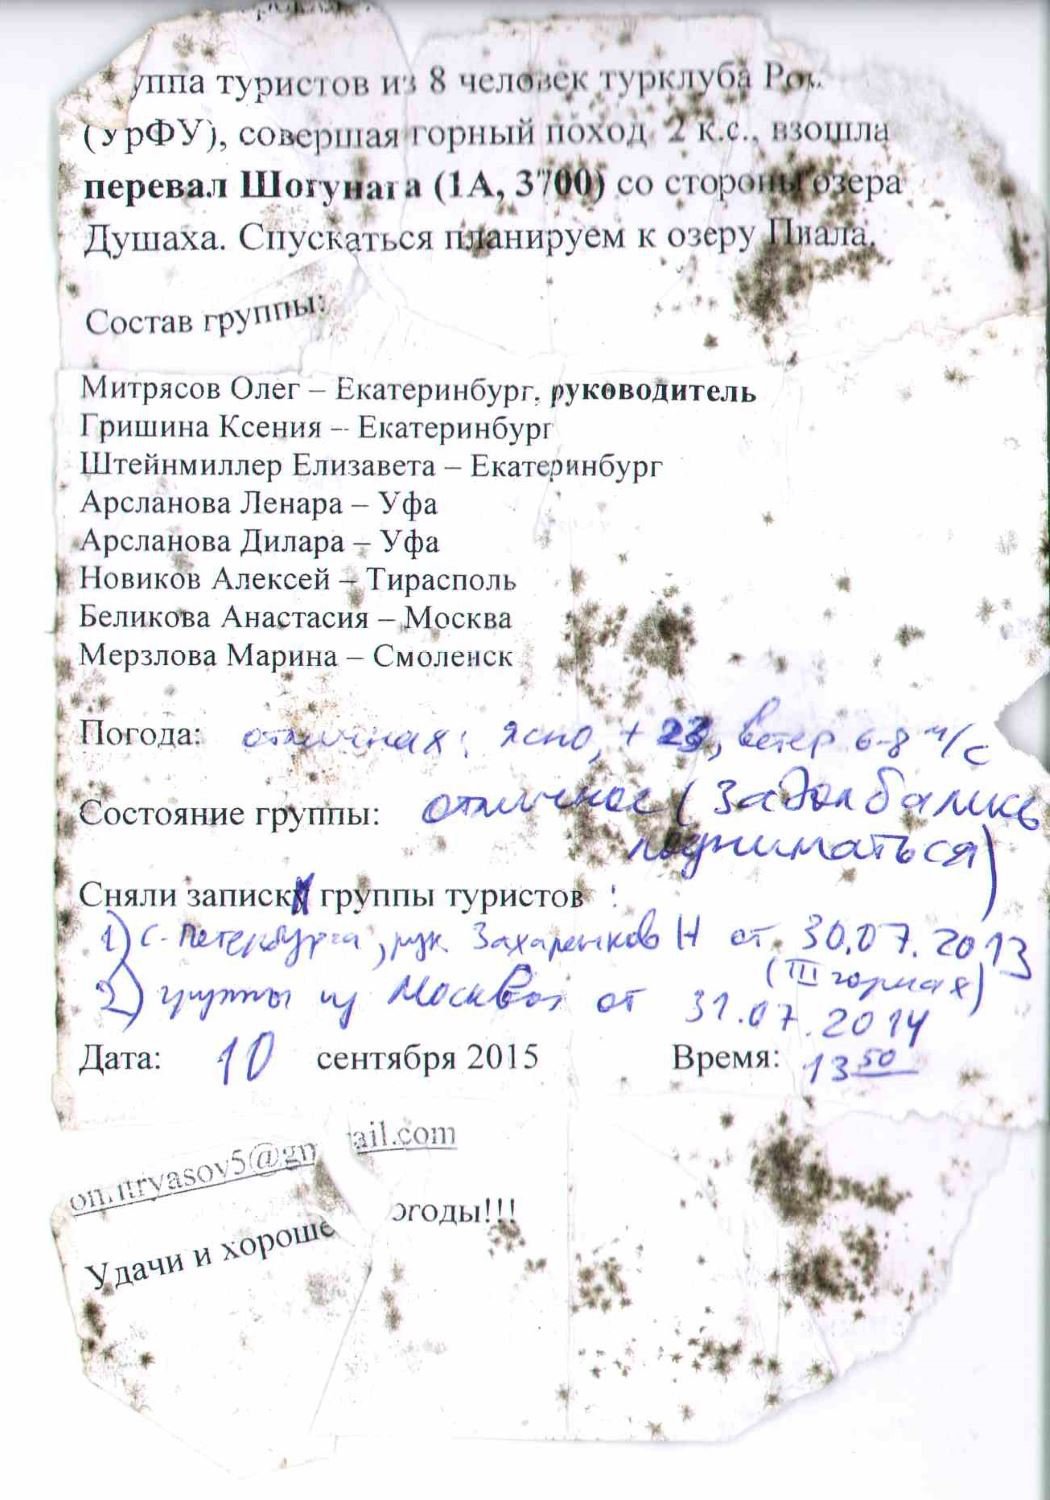 уппа туристов из 8 человек турклуба Ром
(УрФУ), совершая горный поход 2 к.с., взошла
перевал Шогунага (1А, 3700) со стороны озера
Душаха. Спускаться планируем к озеру Пиала.
Состав группы:
Митрясов Олег – Екатеринбург, руководитель
Гришина Ксения – Екатеринбург
Штейнмиллер Елизавета – Екатеринбург
Арсланова Ленара – Уфа
Арсланова Дилара – Уфа
Новиков Алексей – Тирасполь
Беликова Анастасия – Москва
Мерзлова Марина – Смоленск
Погода: отличная: ясно, +23, ветер 6-8 м/с
Состояние группы: отличное (задолбались
подниматься)
Сняли записки группы туристов :
1) С-Петербурга, рук. Захаренков Н от 30.07.2013
(III горная)
2) группы из Москвы от 31.07.2014
Дата: 10 сентября 2015 Время: 13 50
omitryasov5@gmail.com
Удачи и хороше огоды!!!